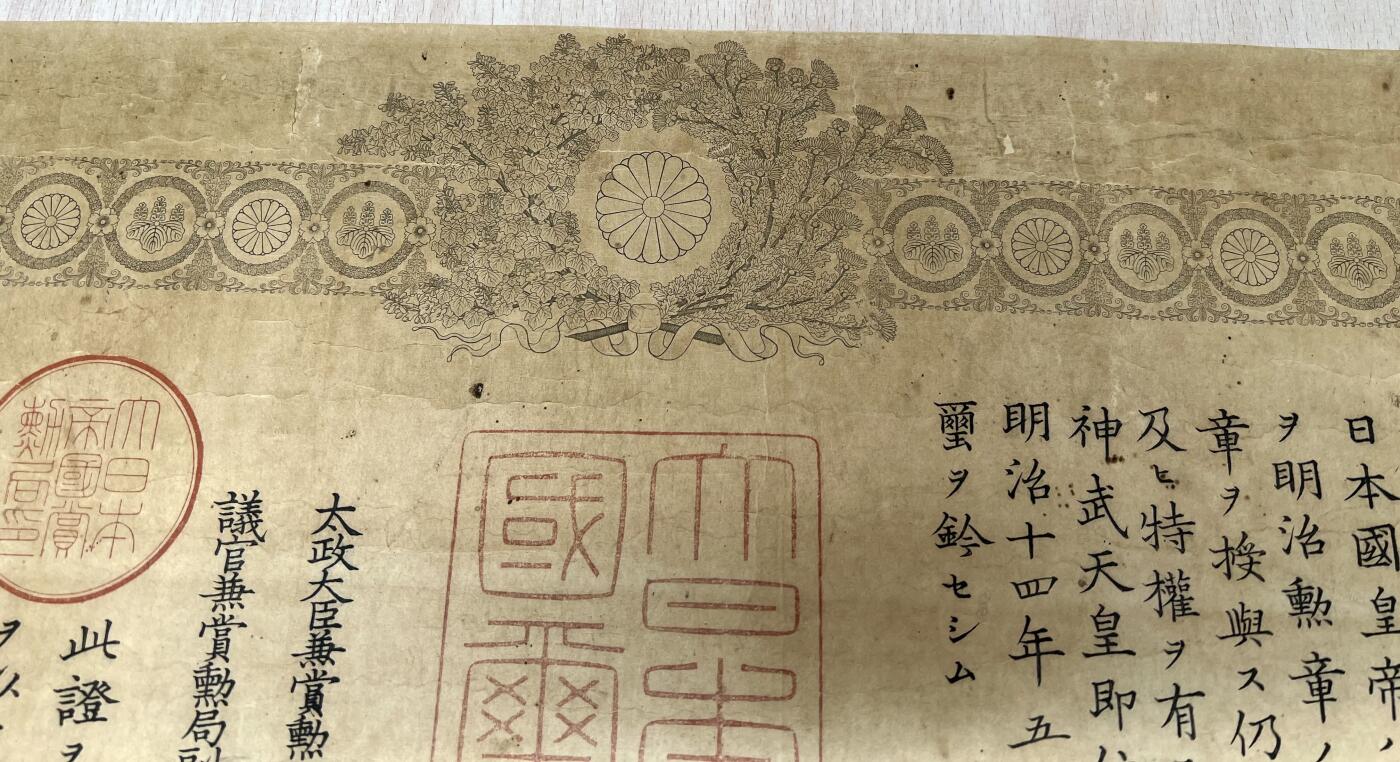 日本國皇帝
ヲ明治勲章ノ
章ヲ授與ス仍
及ヒ特權ヲ有
神武天皇即
明治十四年五
璽ヲ鈐セシム
大日本
國璽
太政大臣兼賞勲
議官兼賞勲局副
大日本
帝國賞
勲局印
此證ヲ